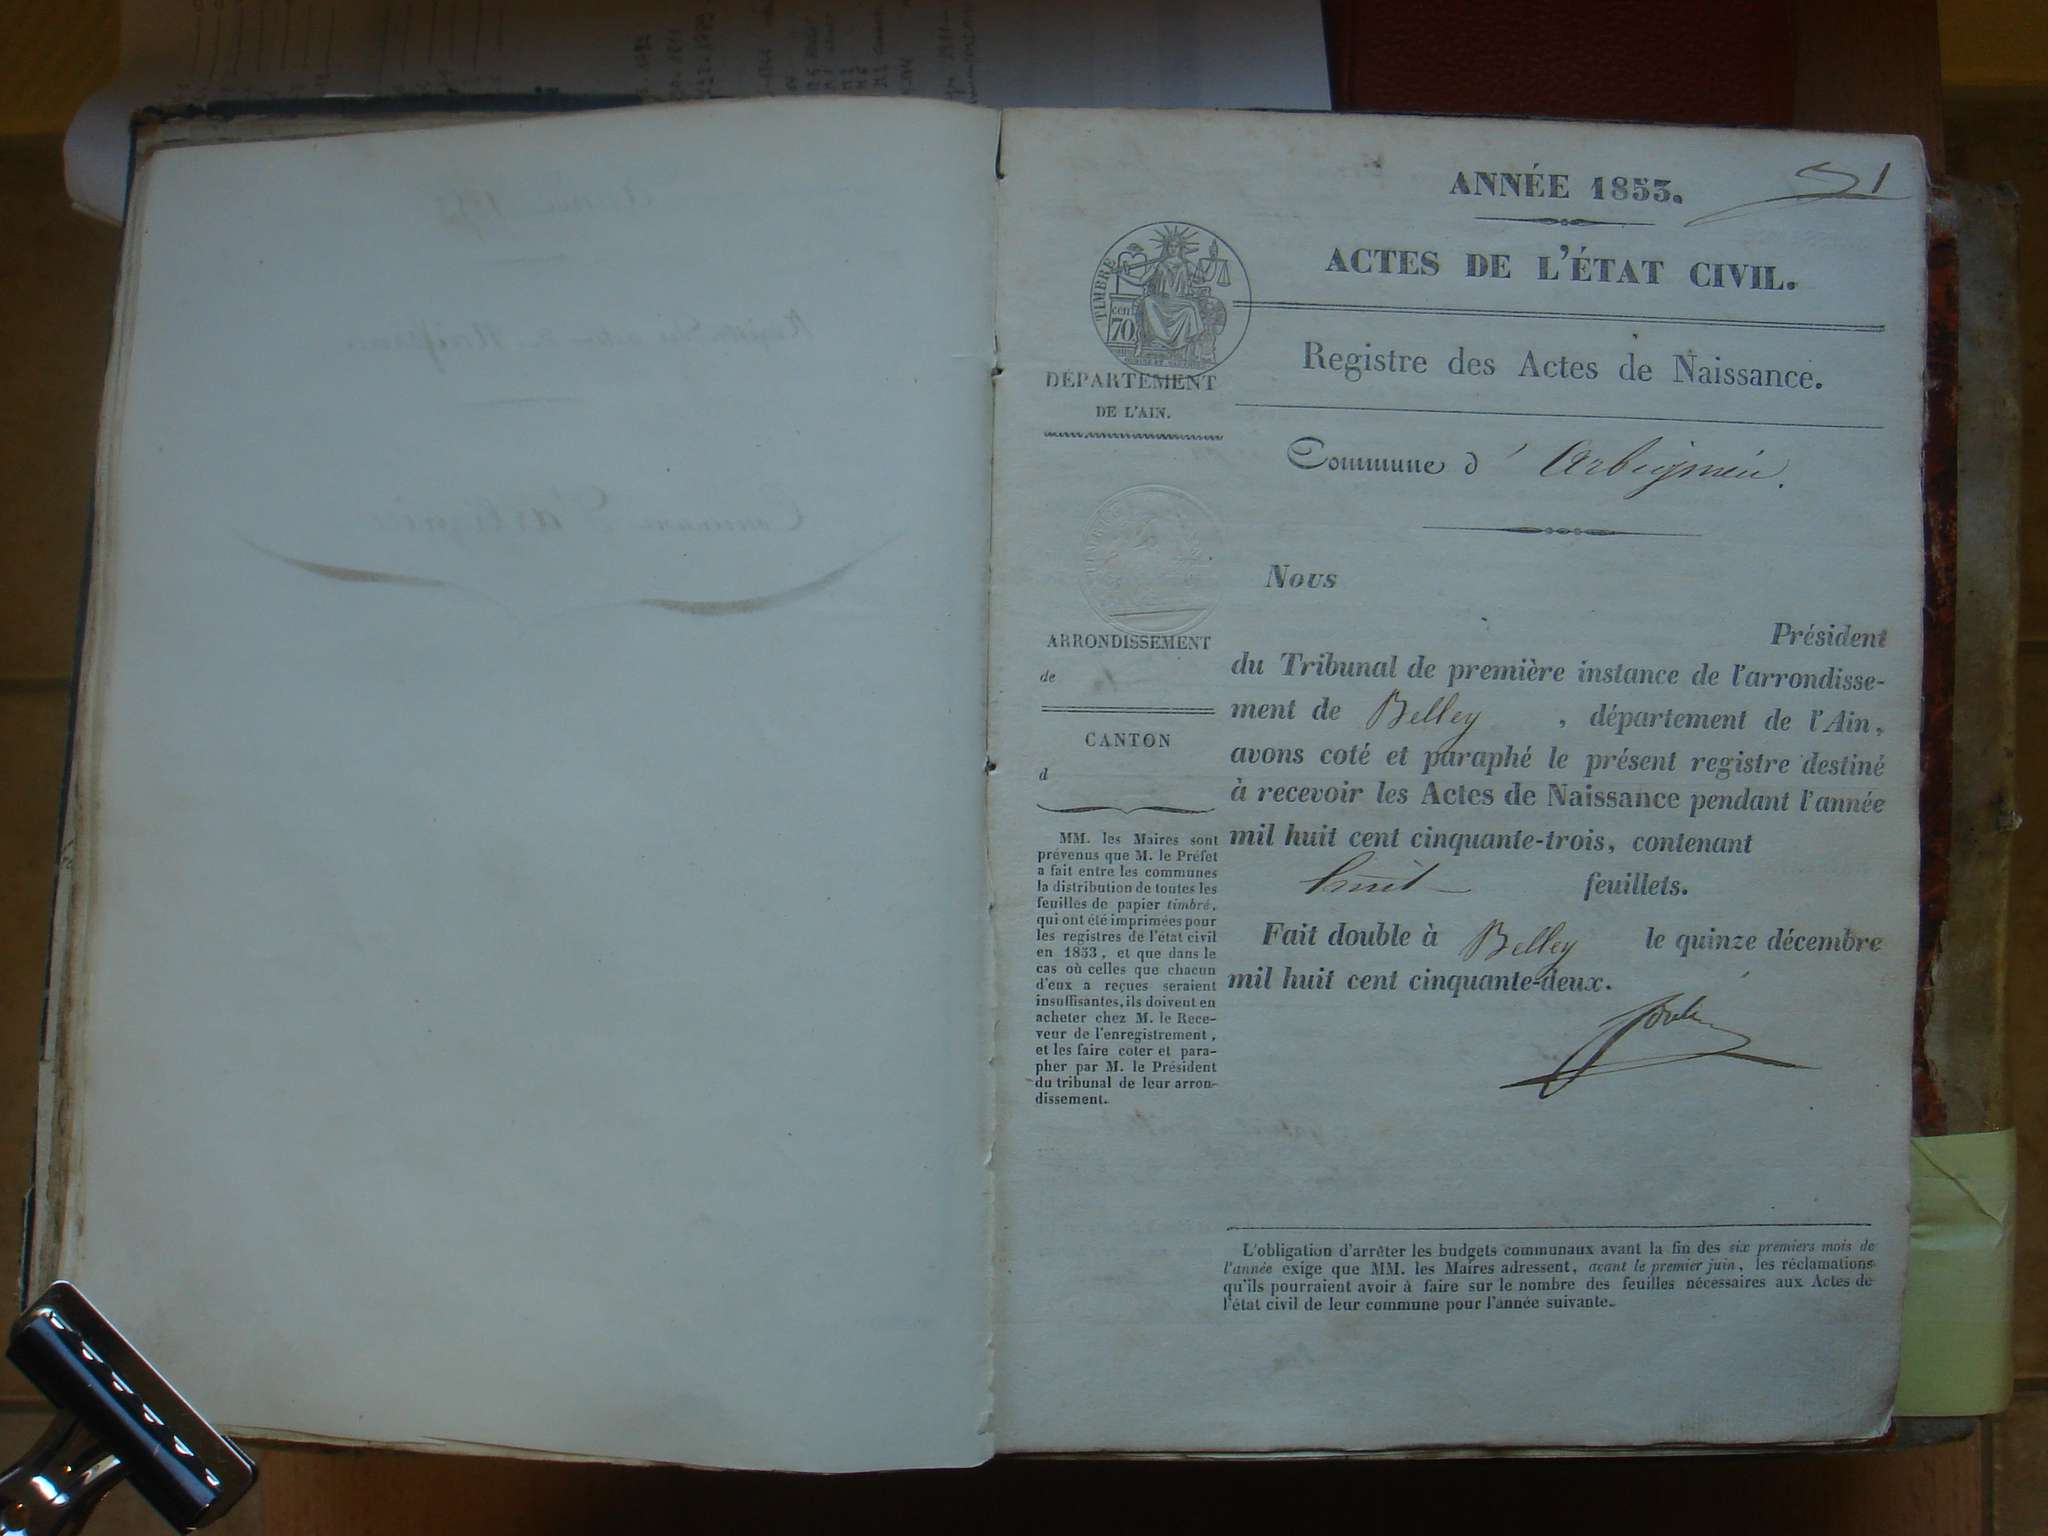 ANNÉE 1853.
1
ACTES DE L'ÉTAT CIVIL.
TIMBRE
cent
70
DÉPARTEMENT
DE L'AIN.
Registre des Actes de Naissance.
Commune d' Arbignieu.
Nous
Président
du Tribunal de première instance de l'arrondisse-
ment de Belley, département de l'Ain,
avons coté et paraphé le présent registre destiné
à recevoir les Actes de Naissance pendant l'année
mil huit cent cinquante-trois, contenant
huit feuillets.
Fait double à Belley le quinze décembre
mil huit cent cinquante-deux.
ARRONDISSEMENT
de
CANTON
d
MM. les Maires sont
prévenus que M. le Préfet
a fait entre les communes
la distribution de toutes les
feuilles de papier timbré,
qui ont été imprimées pour
les registres de l'état civil
en 1853, et que dans le
cas où celles que chacun
d'eux a reçues seraient
insuffisantes, ils doivent en
acheter chez M. le Rece-
veur de l'enregistrement,
et les faire coter et para-
pher par M. le Président
du tribunal de leur arron-
dissement.
L'obligation d'arrêter les budgets communaux avant la fin des six premiers mois de
l'année exige que MM. les Maires adressent, avant le premier juin, les réclamations
qu'ils pourraient avoir à faire sur le nombre des feuilles nécessaires aux Actes de
l'état civil de leur commune pour l'année suivante.